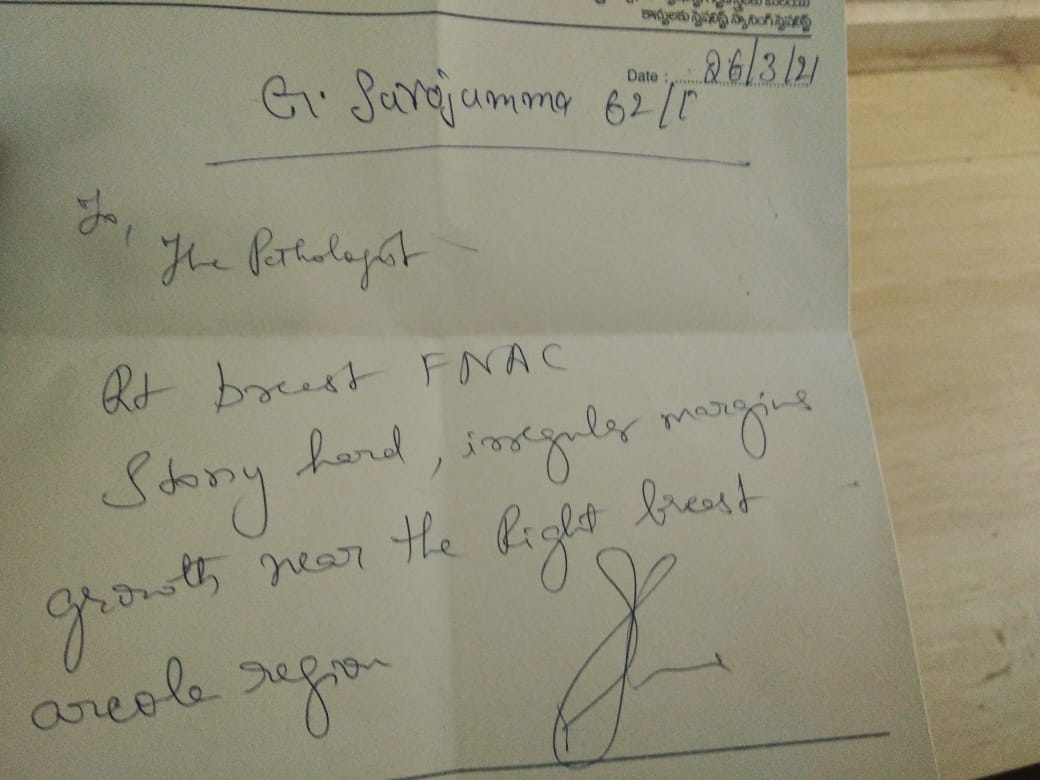 కాన్పులకు స్పెషలిస్ట్ స్కానింగ్ స్పెషలిస్ట్
Date : 26/3/21
G. Sarojamma 62/F
To,
The Pathologist
Rt breast FNAC
Stony hard, irregular margins
growth near the Right breast
areola region